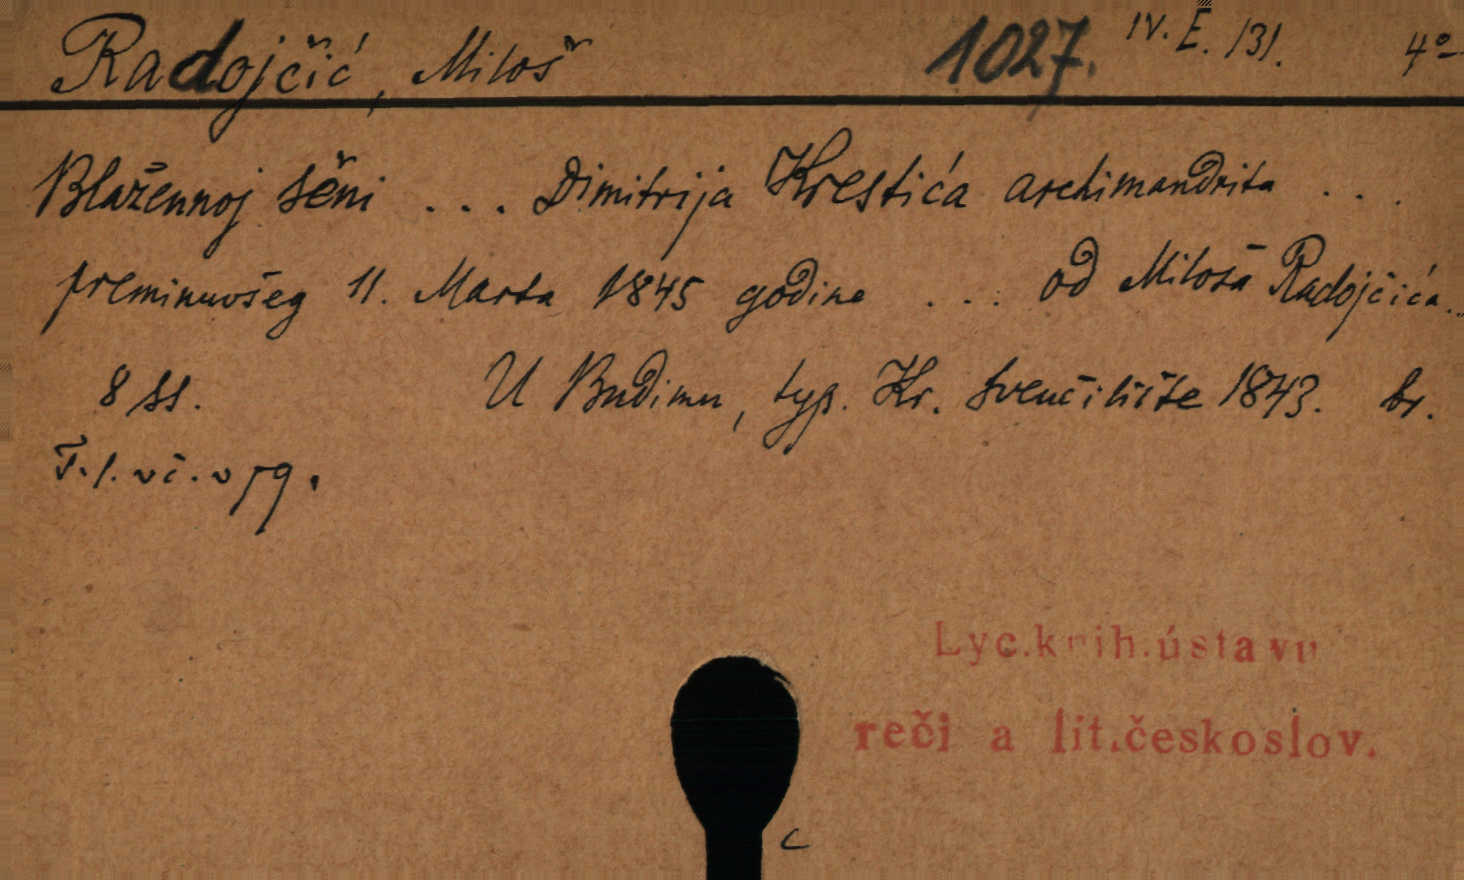 Radojčić, Miloš 1027. IV. E. 131. 4º
Blažennoj sěni ... Dimitrija Krestića archimandrita ...
preminuvšeg 11. Marta 1845 godine ... od Miloša Radojčića...
8 ss. U Budimu, typ. Kr. Svenčilište 1843. br.
Lyc.knih.ústavu
reči a lit.československ.
c